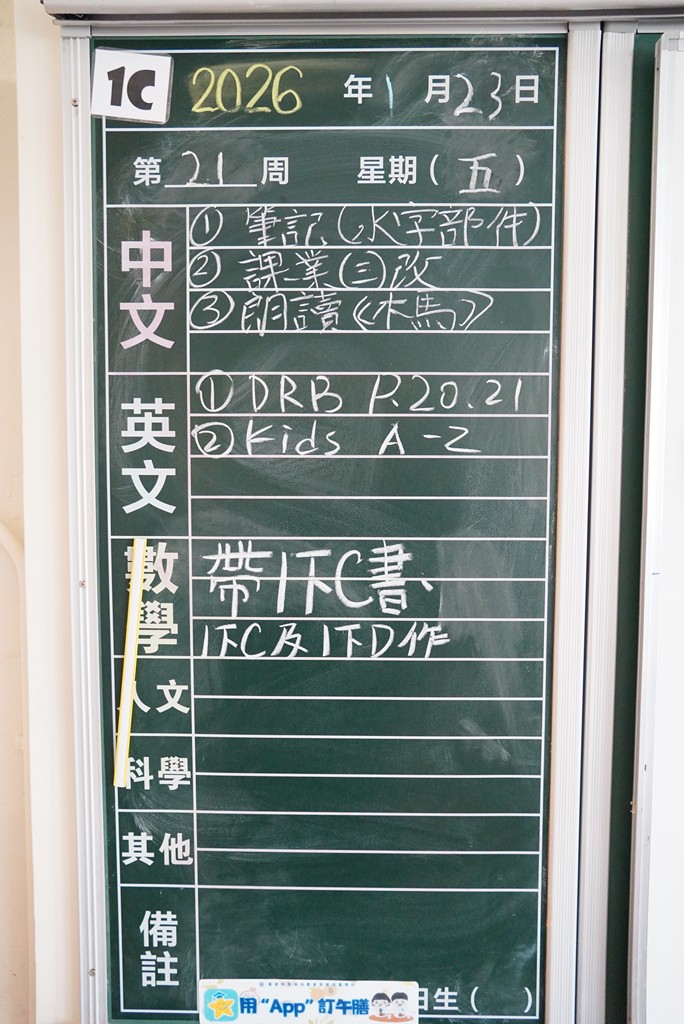 1C 2026 年 1 月 23 日
第 21 周 星期(五)
中文
① 筆記(水字部件)
② 課業(三)改
③ 朗讀《木馬》
英文
① DRB P.20.21
② Kids A-Z
數學
帶1下C書、
1下C及1下D作
人文
科學
其他
備註
用“App”訂午膳
日生( )